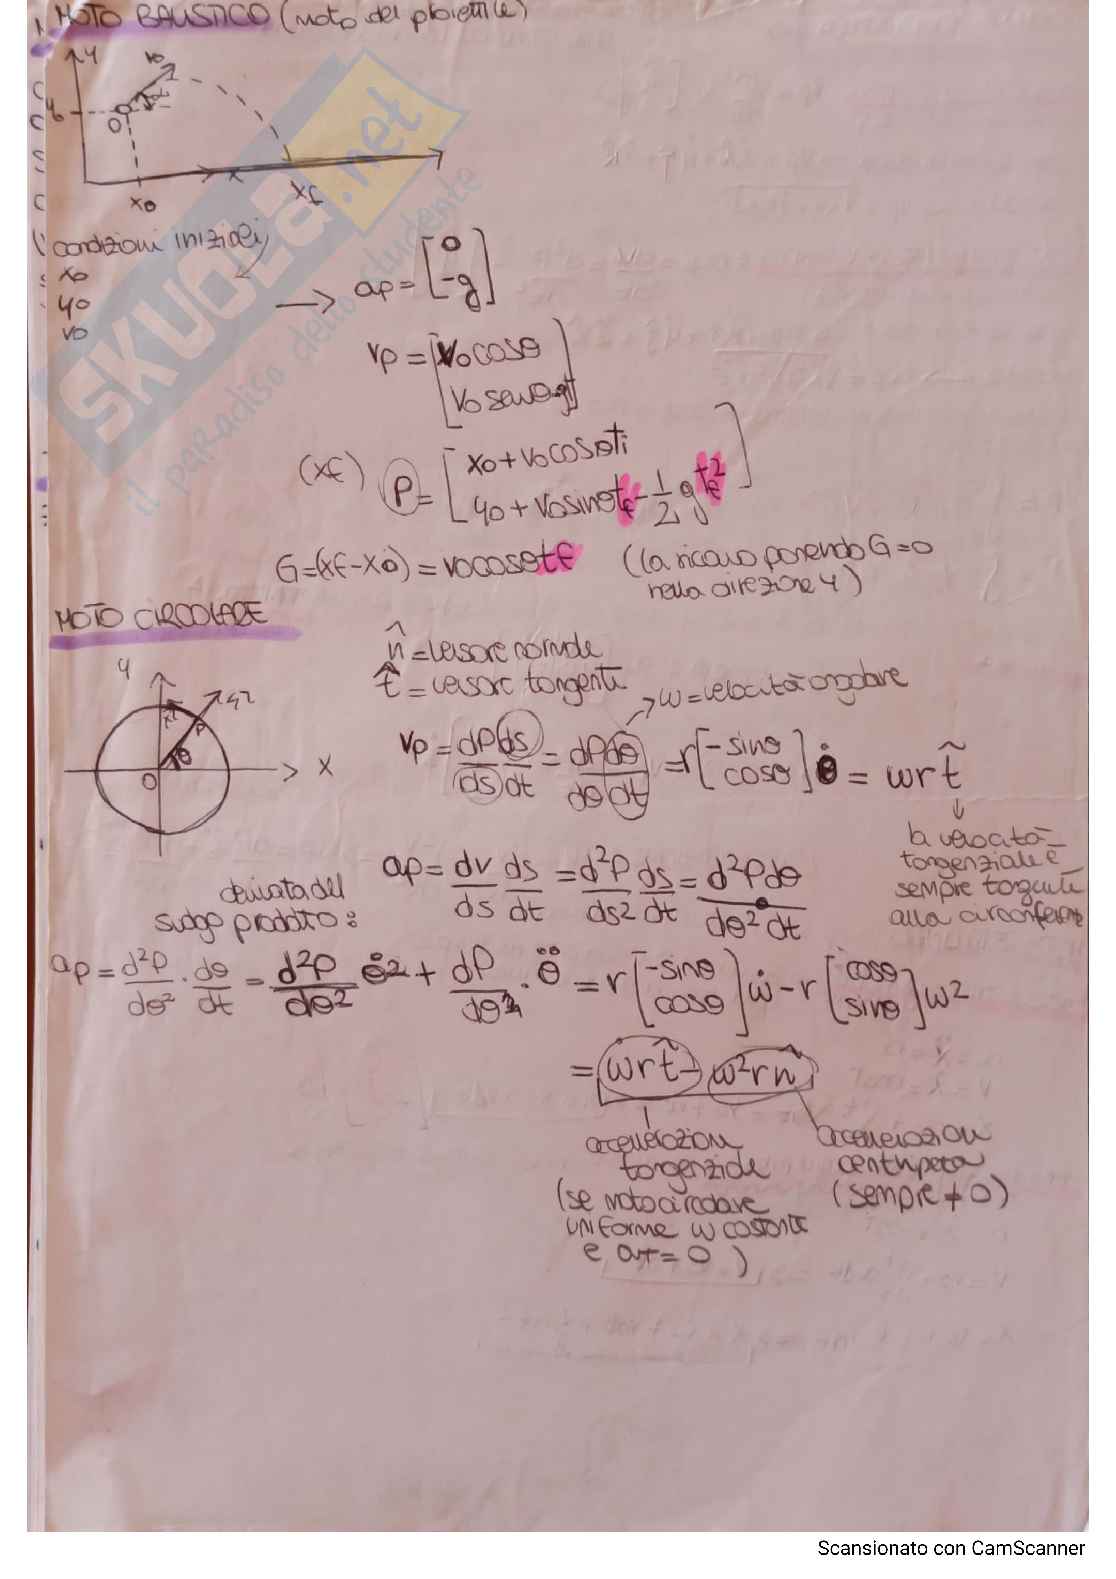 MOTO BALISTICO (moto del proiettile)
y
v0
y0
O
x
x0
xf
condizioni iniziali
x0
y0
v0
→ ap = [0
-g]
vp = [v0cosθ
v0senθ-gt]
(xf) P = [x0 + v0cosθti
y0 + v0sinθtf - 1/2 g tf²]
G = (xf - x0) = v0cosθtf (la ricavo ponendo G = 0
nella direzione y)
MOTO CIRCOLARE
n̂ = versore normale
t̂ = versore tangente
→ ω = velocità angolare
y
P
θ
O
x
vp = dP/ds ds/dt = dP/dθ dθ/dt = r [-sinθ
cosθ] θ̇ = ωr t̃
la velocità
tangenziale è
sempre tangente
alla circonferenza
ap = dv/ds ds/dt = d²P/ds² ds/dt = d²P/dθ² dθ/dt
derivata del
prodotto:
ap = d²P/dθ² · dθ/dt = d²P/dθ² θ̇² + dP/dθ · θ̈ = r [-sinθ
cosθ] ω̇ - r [cosθ
sinθ] ω²
= ω̇r t̃ - ω²r n̂
accellerazione
tangenziale
(se moto circolare
uniforme ω costante
e aT = 0)
accelerazione
centripeta
(sempre ≠ 0)
SKUOLA.net
il paradiso dello studente
Scansionato con CamScanner